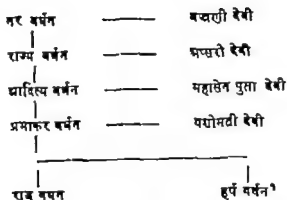 नर वर्धन वज्रणी देवी
राज्य वर्धन अप्सरो देवी
आदित्य वर्धन महासेन गुप्ता देवी
प्रभाकर वर्धन यशोमती देवी
राज वर्धन हर्ष वर्धन¹